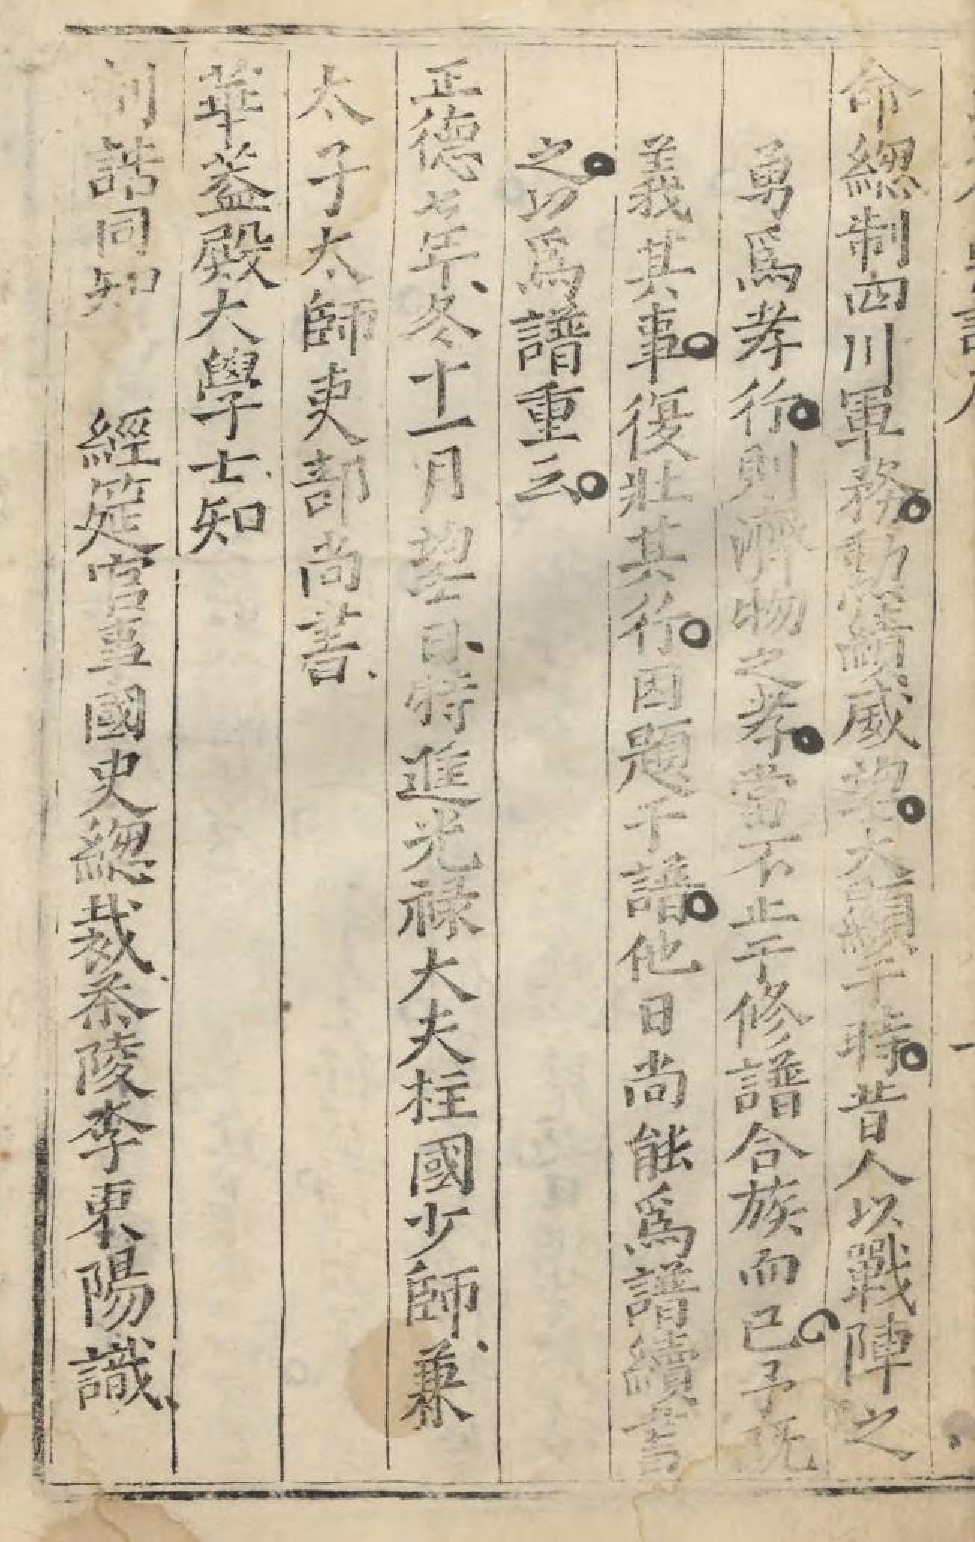 命總制四川軍務勳績威望大顯于時昔人以戰陣之
勇爲孝行則濟物之孝當不止于修譜合族而已予旣
義其事復壯其行因題于譜他日尚能爲譜續書
之以爲譜重云
正德七年冬十一月望日特進光祿大夫柱國少師兼
太子太師吏部尚書
華蓋殿大學士知
制誥同知 經筵官事國史總裁茶陵李東陽識